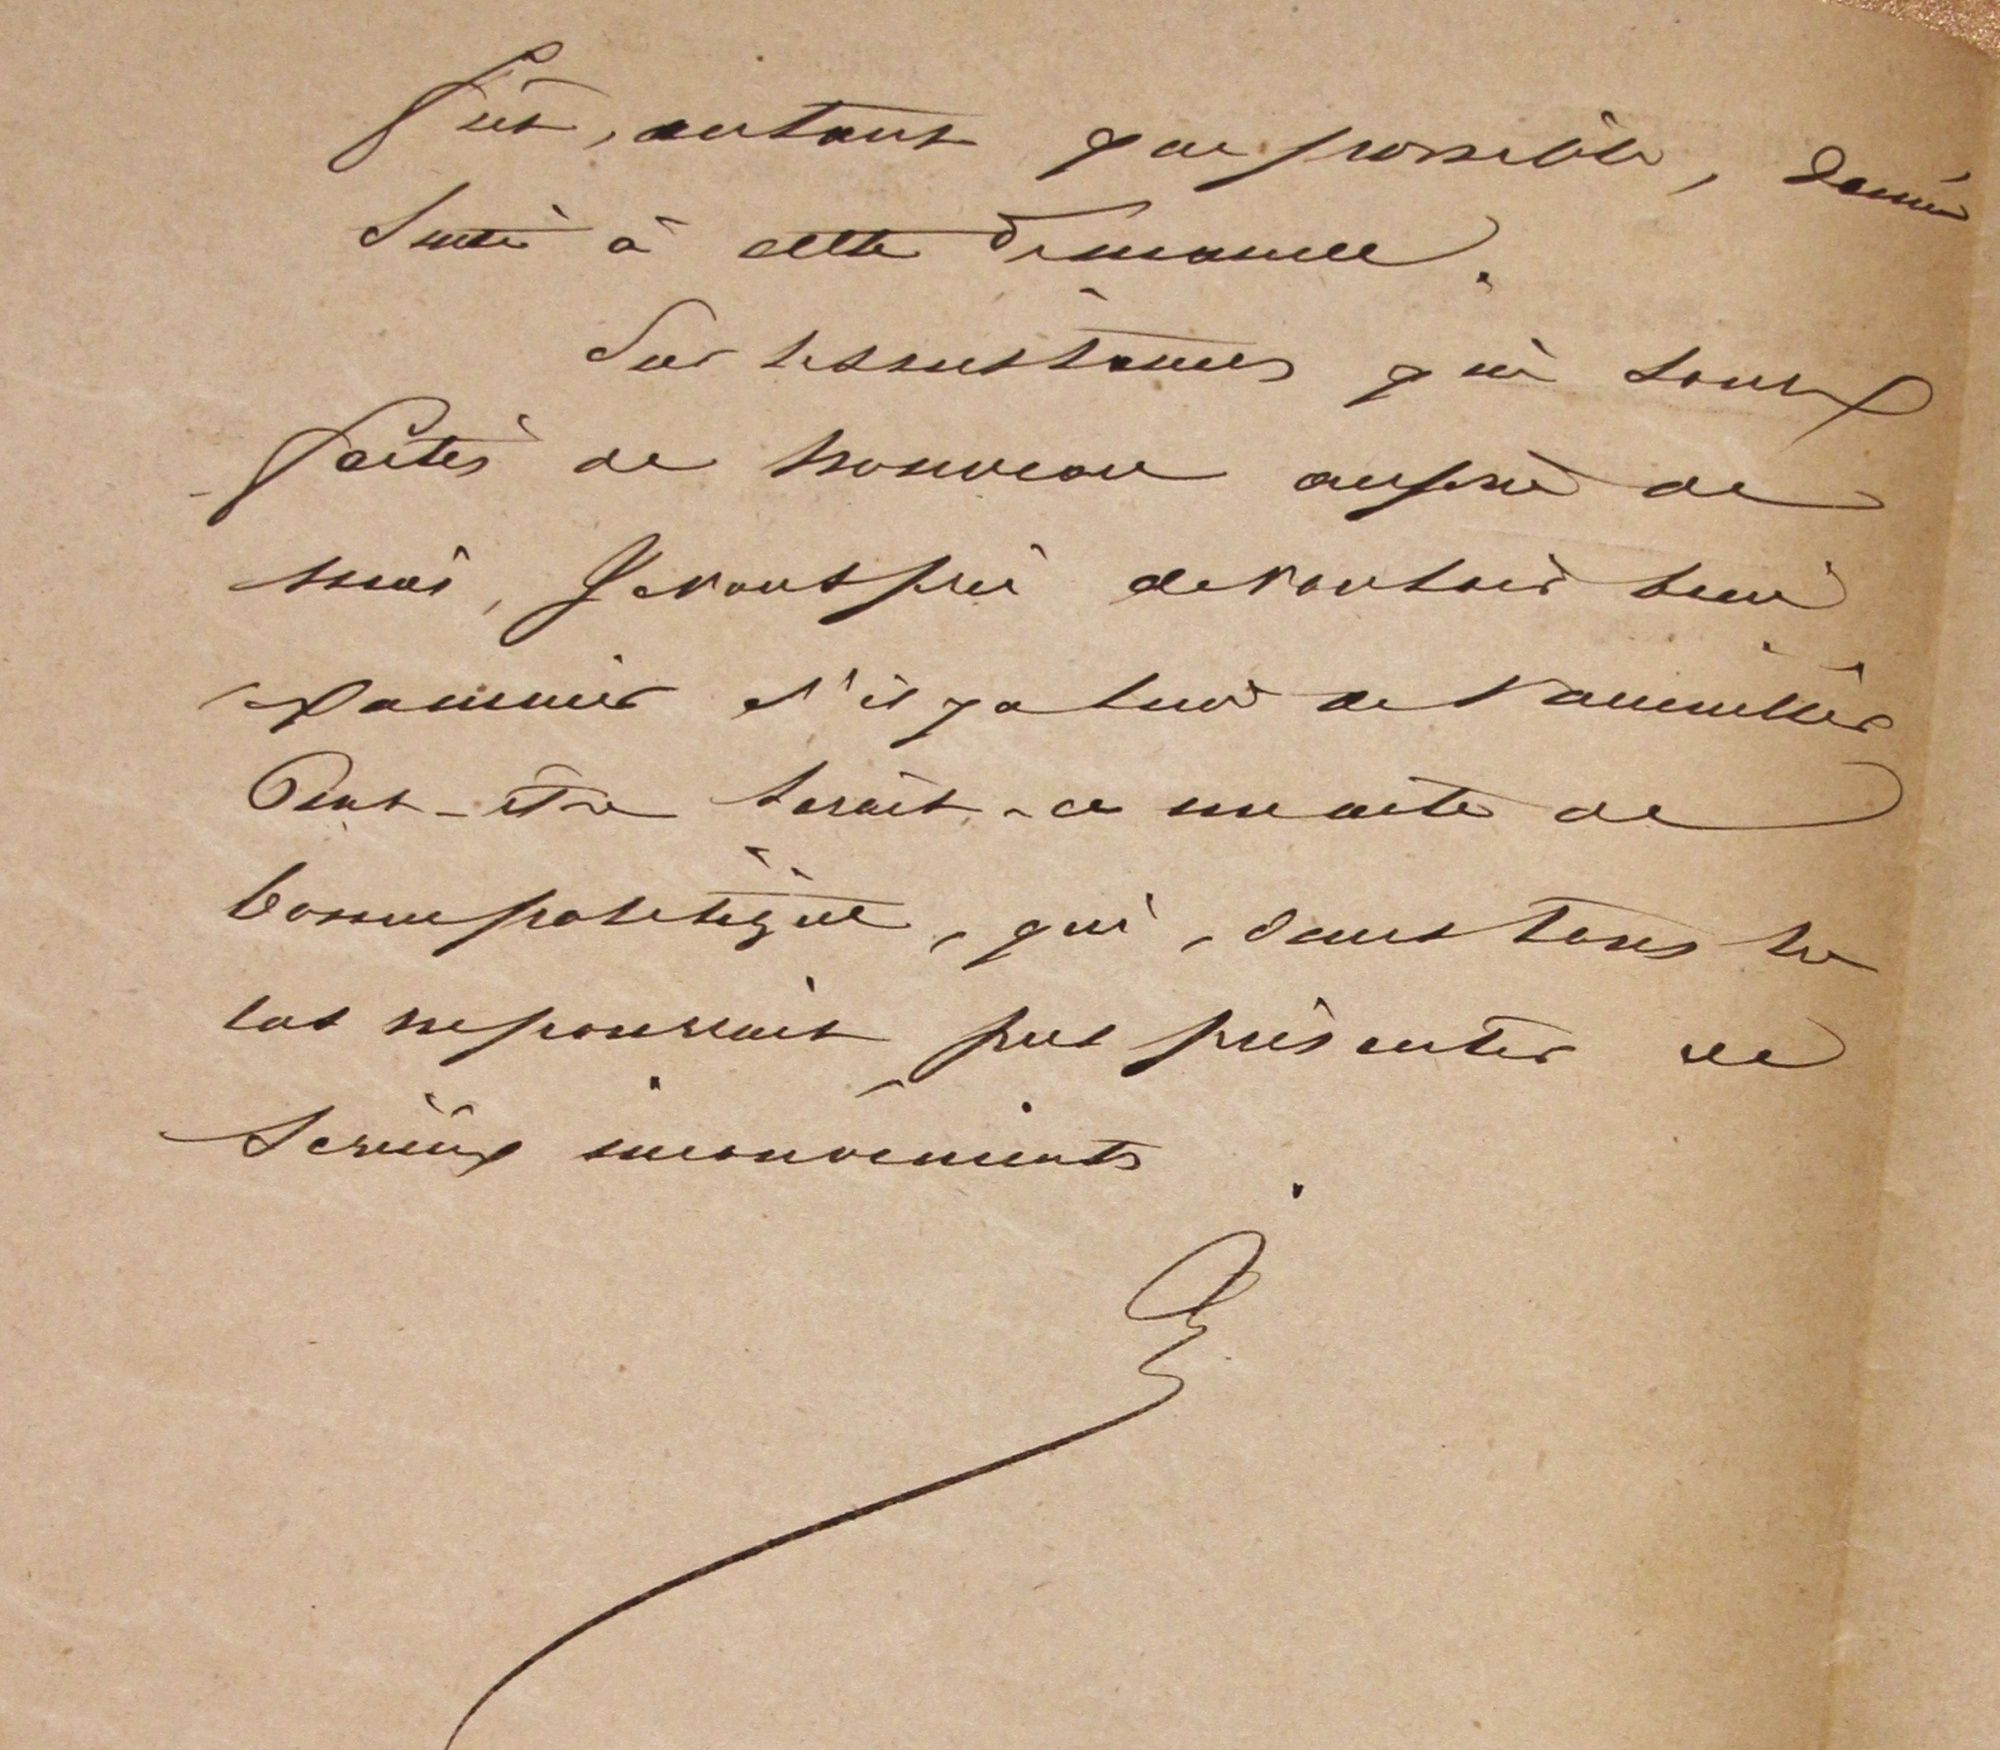 fût, autant que possible, donné
suite à cette demande.
Sur les instances qui sont
faites de nouveau auprès de
moi, Je vous prie de vouloir bien
examiner s'il y a lieu de l'accueillir
Peut-être serait-ce un acte de
bonne politique, qui, dans tous les
cas ne pourrait pas présenter de
sérieux inconvénients.